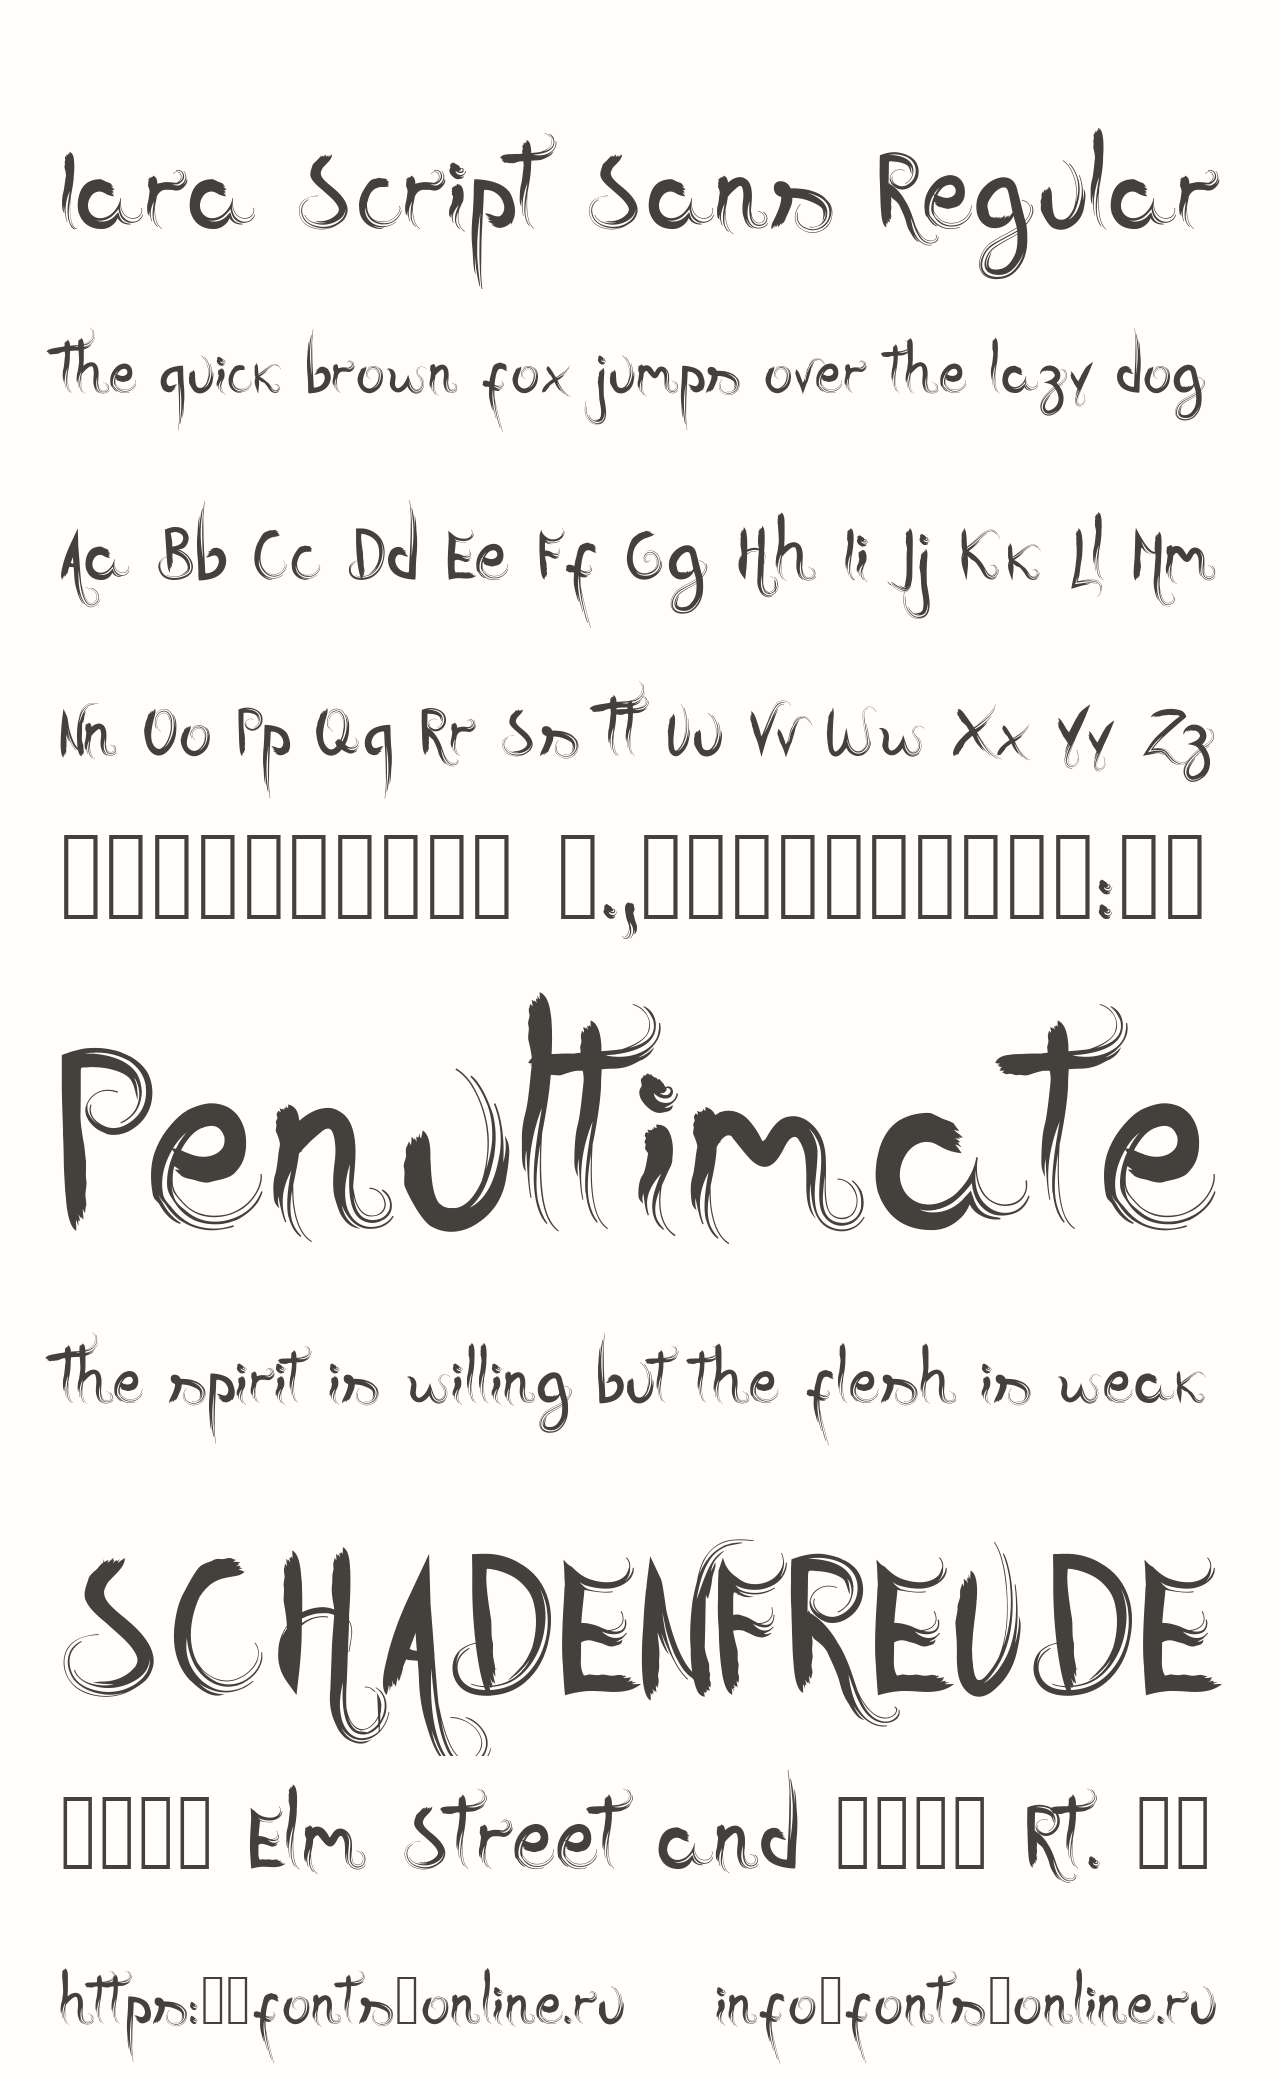 Iara Script Sans Regular
The quick brown fox jumps over the lazy dog
Aa Bb Cc Dd Ee Ff Gg Hh Ii Jj Kk Ll Mm
Nn Oo Pp Qq Rr Ss Tt Uu Vv Ww Xx Yy Zz
□□□□□□□□□□ □.,□□□□□□□□□□:□□
Penultimate
The spirit is willing but the flesh is weak
SCHADENFREUDE
□□□□ Elm Street and □□□□ Rt. □□
https:□□fonts□online.ru info□fonts□online.ru